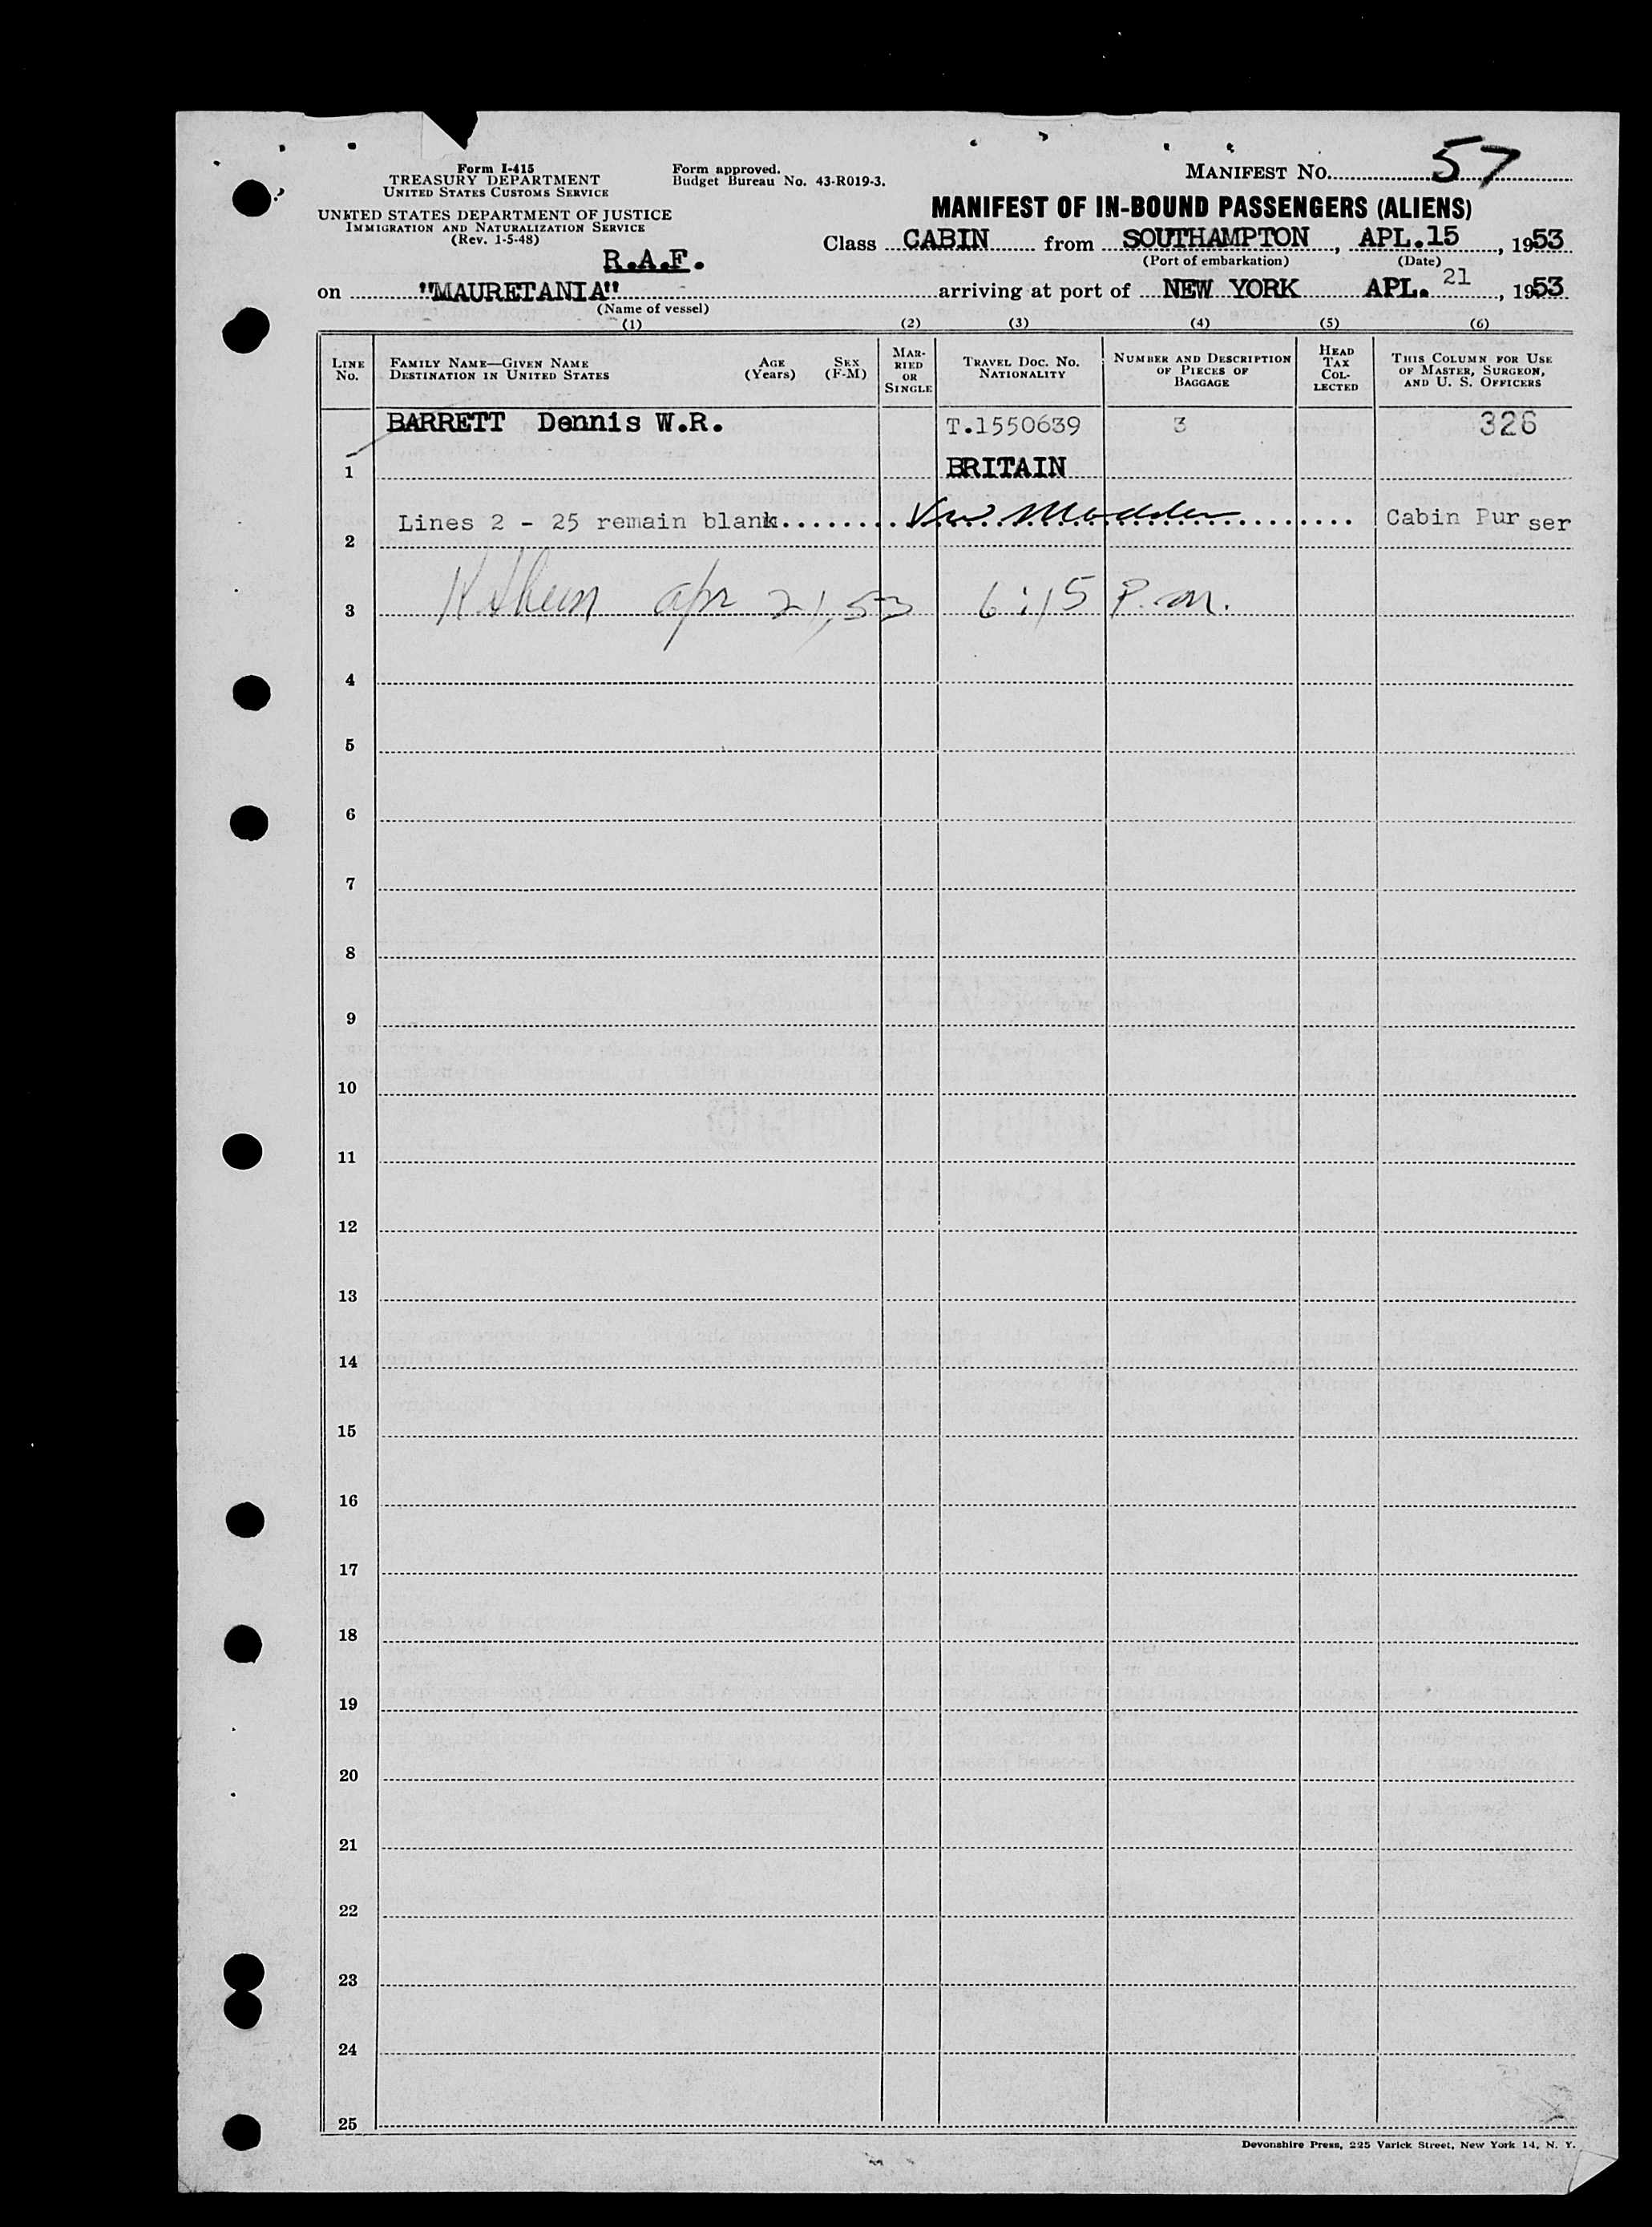 Form I-415
TREASURY DEPARTMENT
UNITED STATES CUSTOMS SERVICE
UNITED STATES DEPARTMENT OF JUSTICE
IMMIGRATION AND NATURALIZATION SERVICE
(Rev. 1-5-48)
Form approved.
Budget Bureau No. 43-R019-3.
MANIFEST NO. 57
MANIFEST OF IN-BOUND PASSENGERS (ALIENS)
Class CABIN from SOUTHAMPTON, APL.15, 1953
(Port of embarkation) (Date)
R.A.F.
on "MAURETANIA" arriving at port of NEW YORK APL. 21, 1953
(Name of vessel)
(1) (2) (3) (4) (5) (6)
LINE NO.
FAMILY NAME—GIVEN NAME
DESTINATION IN UNITED STATES
AGE (Years)
SEX (F-M)
MARRIED OR SINGLE
TRAVEL DOC. NO. NATIONALITY
NUMBER AND DESCRIPTION OF PIECES OF BAGGAGE
HEAD TAX COLLECTED
THIS COLUMN FOR USE OF MASTER, SURGEON, AND U. S. OFFICERS
BARRETT Dennis W.R. T.1550639 3 326
1 BRITAIN
Lines 2 - 25 remain blank. Cabin Purser
2
apr 21, 53 6:15 P.m.
3
4
5
6
7
8
9
10
11
12
13
14
15
16
17
18
19
20
21
22
23
24
25
Devonshire Press, 225 Varick Street, New York 14, N. Y.